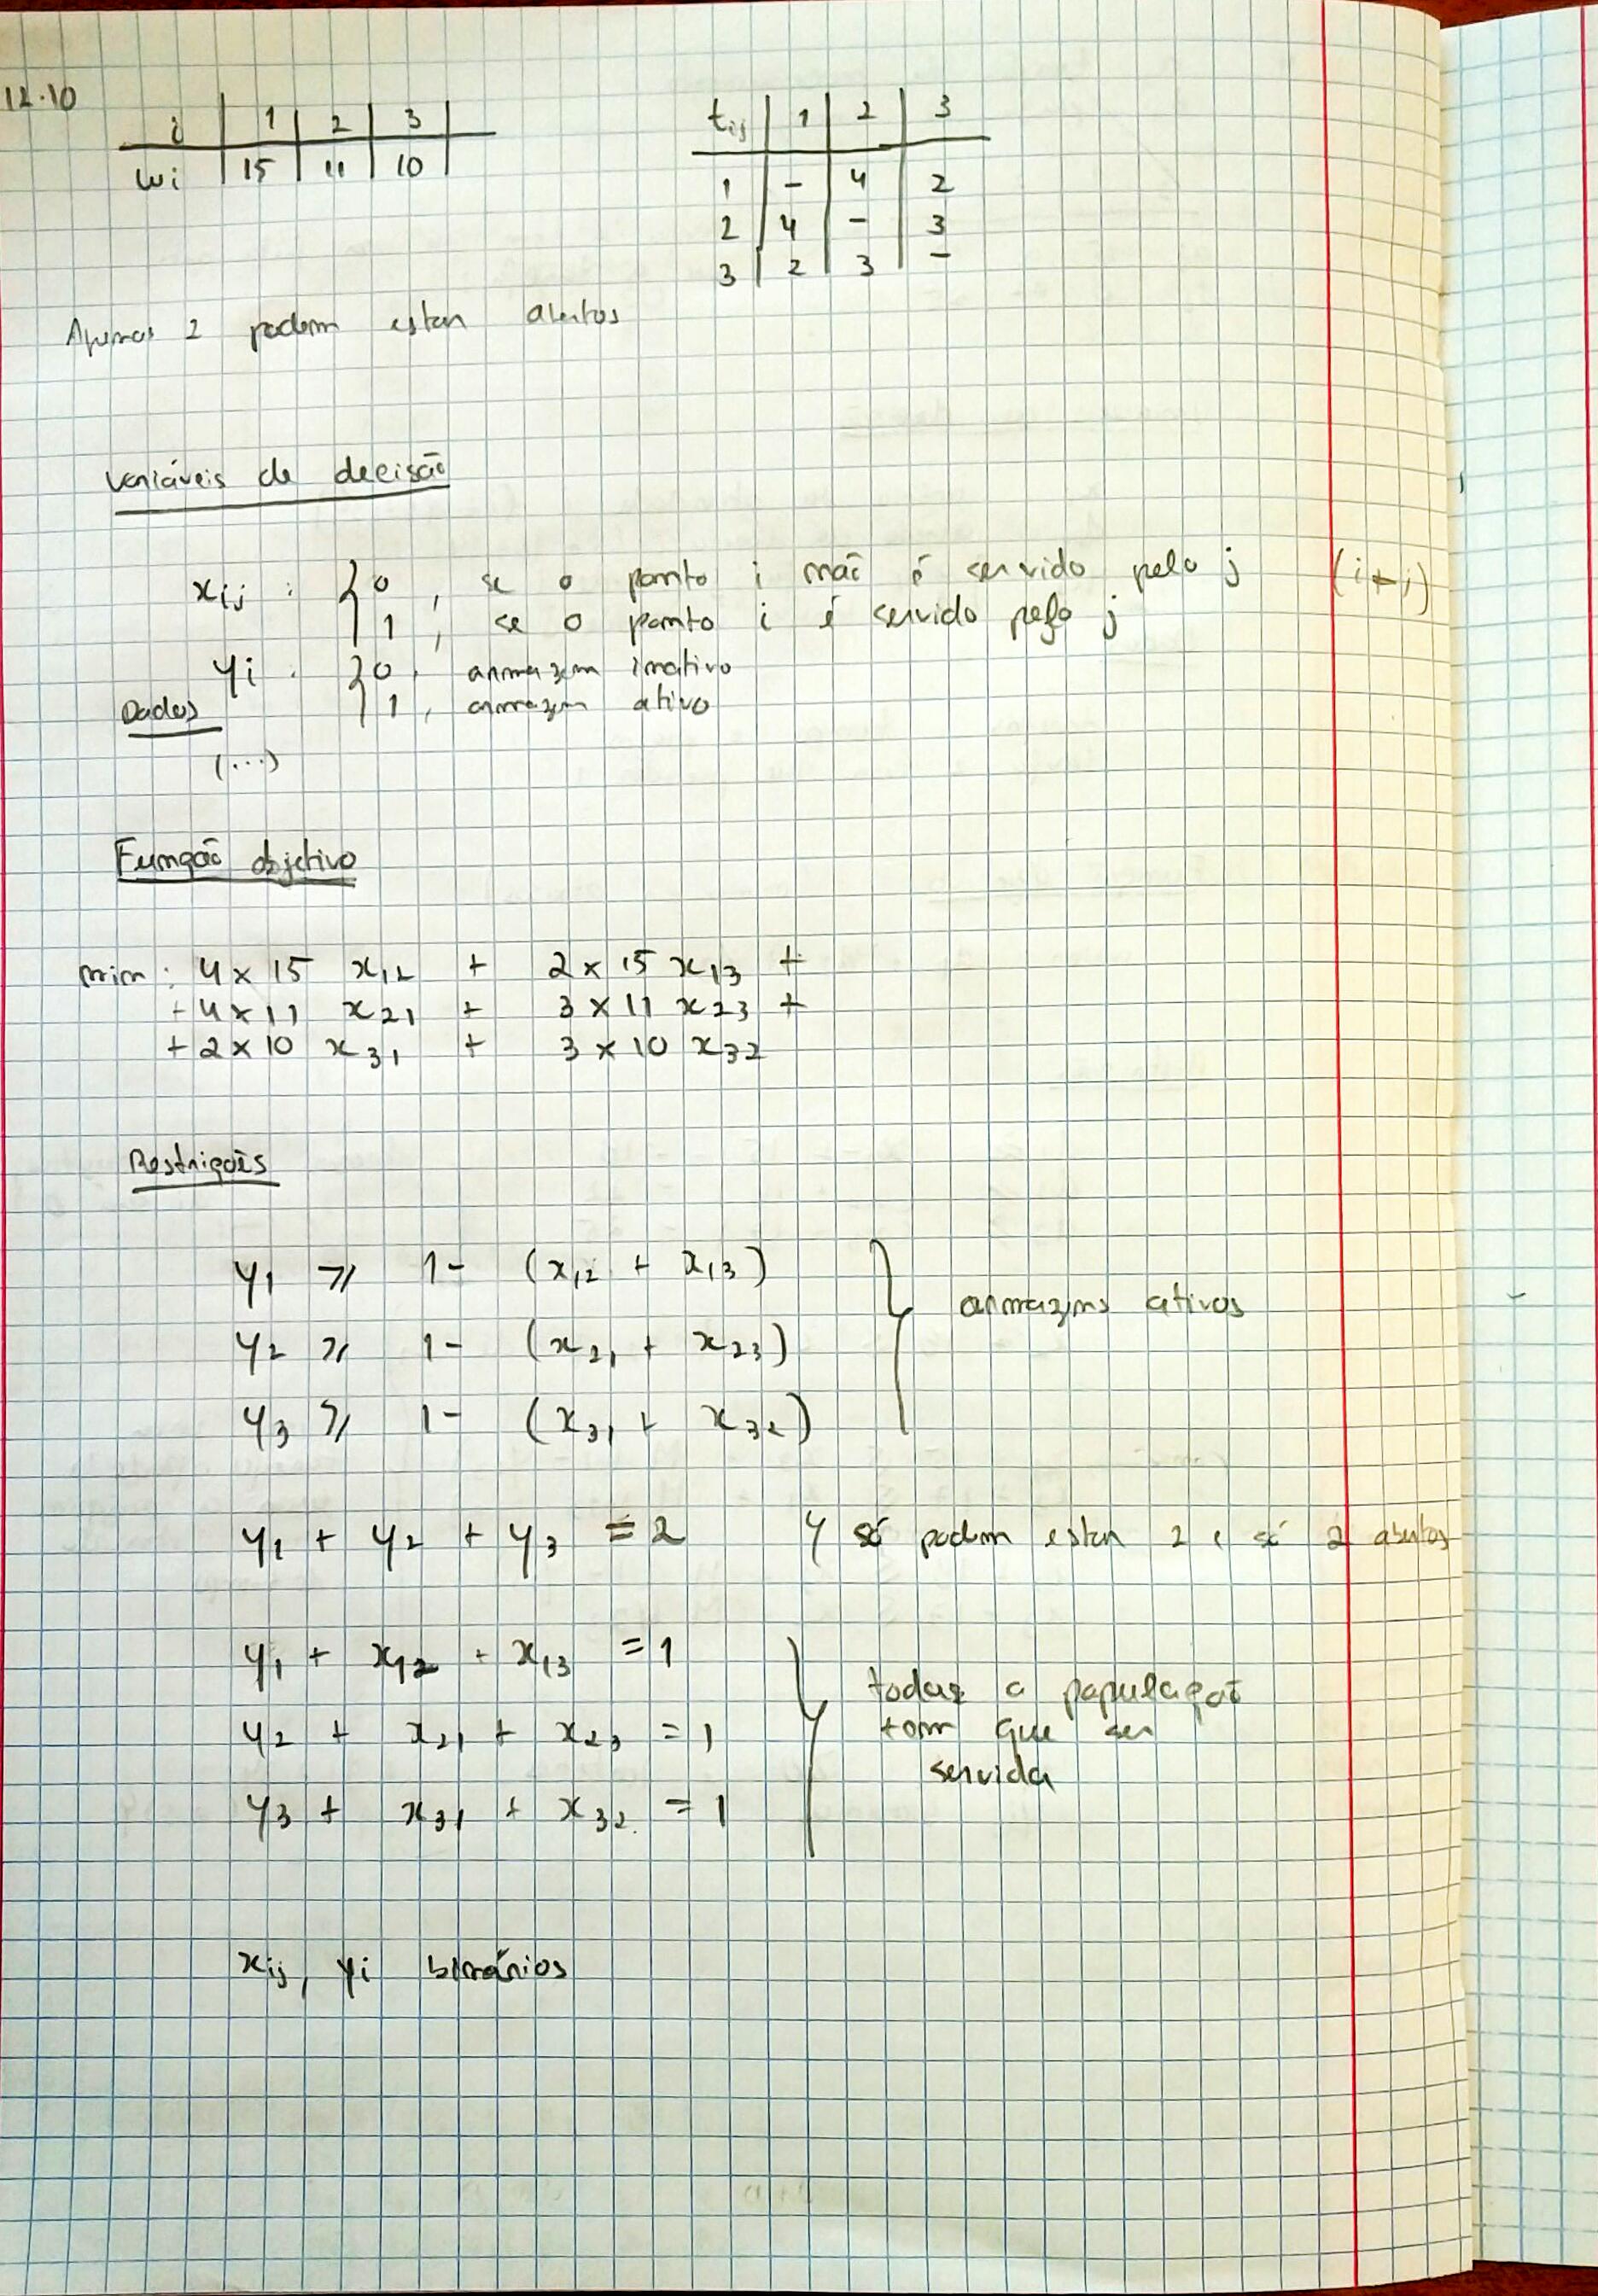 12.10
i | 1 | 2 | 3 |
wi | 15 | 11 | 10 |
tij | 1 | 2 | 3
1 | - | 4 | 2
2 | 4 | - | 3
3 | 2 | 3 | -
Apenas 2 podem estar abertos
Variáveis de decisão
xij : { 0, se o ponto i não é servido pelo j (i ← j)
1, se o ponto i é servido pelo j
yi : { 0, armazem inativo
1, armazem ativo
Dados
(...)
Função objetivo
min: 4 × 15 x12 + 2 × 15 x13 +
+ 4 × 11 x21 + 3 × 11 x23 +
+ 2 × 10 x31 + 3 × 10 x32
Restrições
y1 ≥ 1 - (x12 + x13)
y2 ≥ 1 - (x21 + x23)
y3 ≥ 1 - (x31 + x32)
} armazens ativos
y1 + y2 + y3 = 2 } só podem estar 2 e só 2 abertos
y1 + x12 + x13 = 1
y2 + x21 + x23 = 1
y3 + x31 + x32 = 1
} todas a população
tem que ser
servida
xij, yi binários